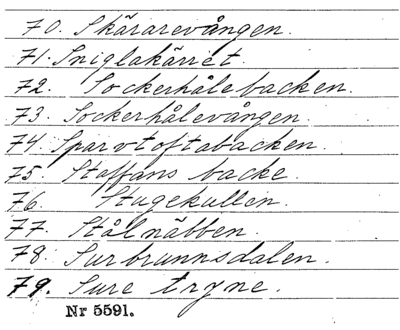 70. Skärarevången.
71. Sniglakärret.
72. Sockerhålebacken.
73. Sockerhålevången.
74. Sparvtoftabacken.
75. Staffans backe.
76. Stugekullen.
77. Stålnäbben.
78. Surbrunnsdalen.
79. Sure tryne.
Nr 5591.